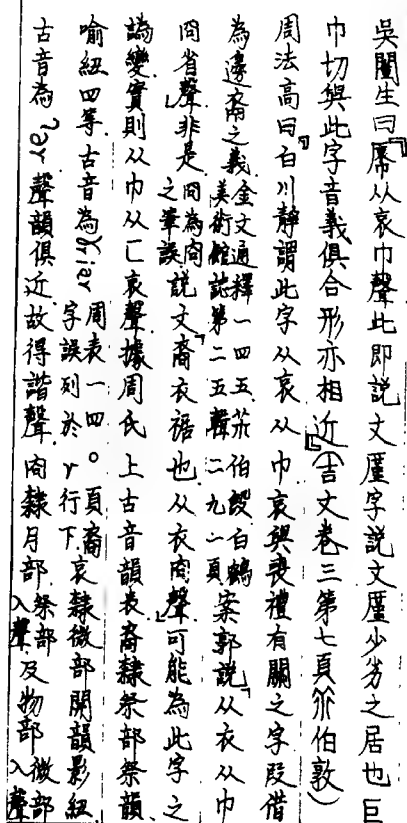 吳闓生曰『𢊁从哀巾聲此即說文廑字說文廑少劣之居也巨
巾切與此字音義俱合形亦相近』(吉文卷三第七頁𠂢伯敦)
周法高曰『白川靜謂此字从哀从巾哀與喪禮有關之字叚借
為邊裔之義金文通釋一四五𠂢伯𣪘白鶴美術館誌第二五輯二九一頁案郭說「从衣从巾
冏省聲」非是冏為㕯之筆誤說文「裔衣裾也从衣㕯聲」可能為此字之
譌變實則从巾从匚哀聲據周氏上古音韻表裔隸祭部祭韻
喻紐四等古音為 周表一四〇頁裔字誤列於r行下哀隸微部開韻影紐
古音為ʔər聲韻俱近故得諧聲㕯隸月部祭部入聲及物部微部入聲